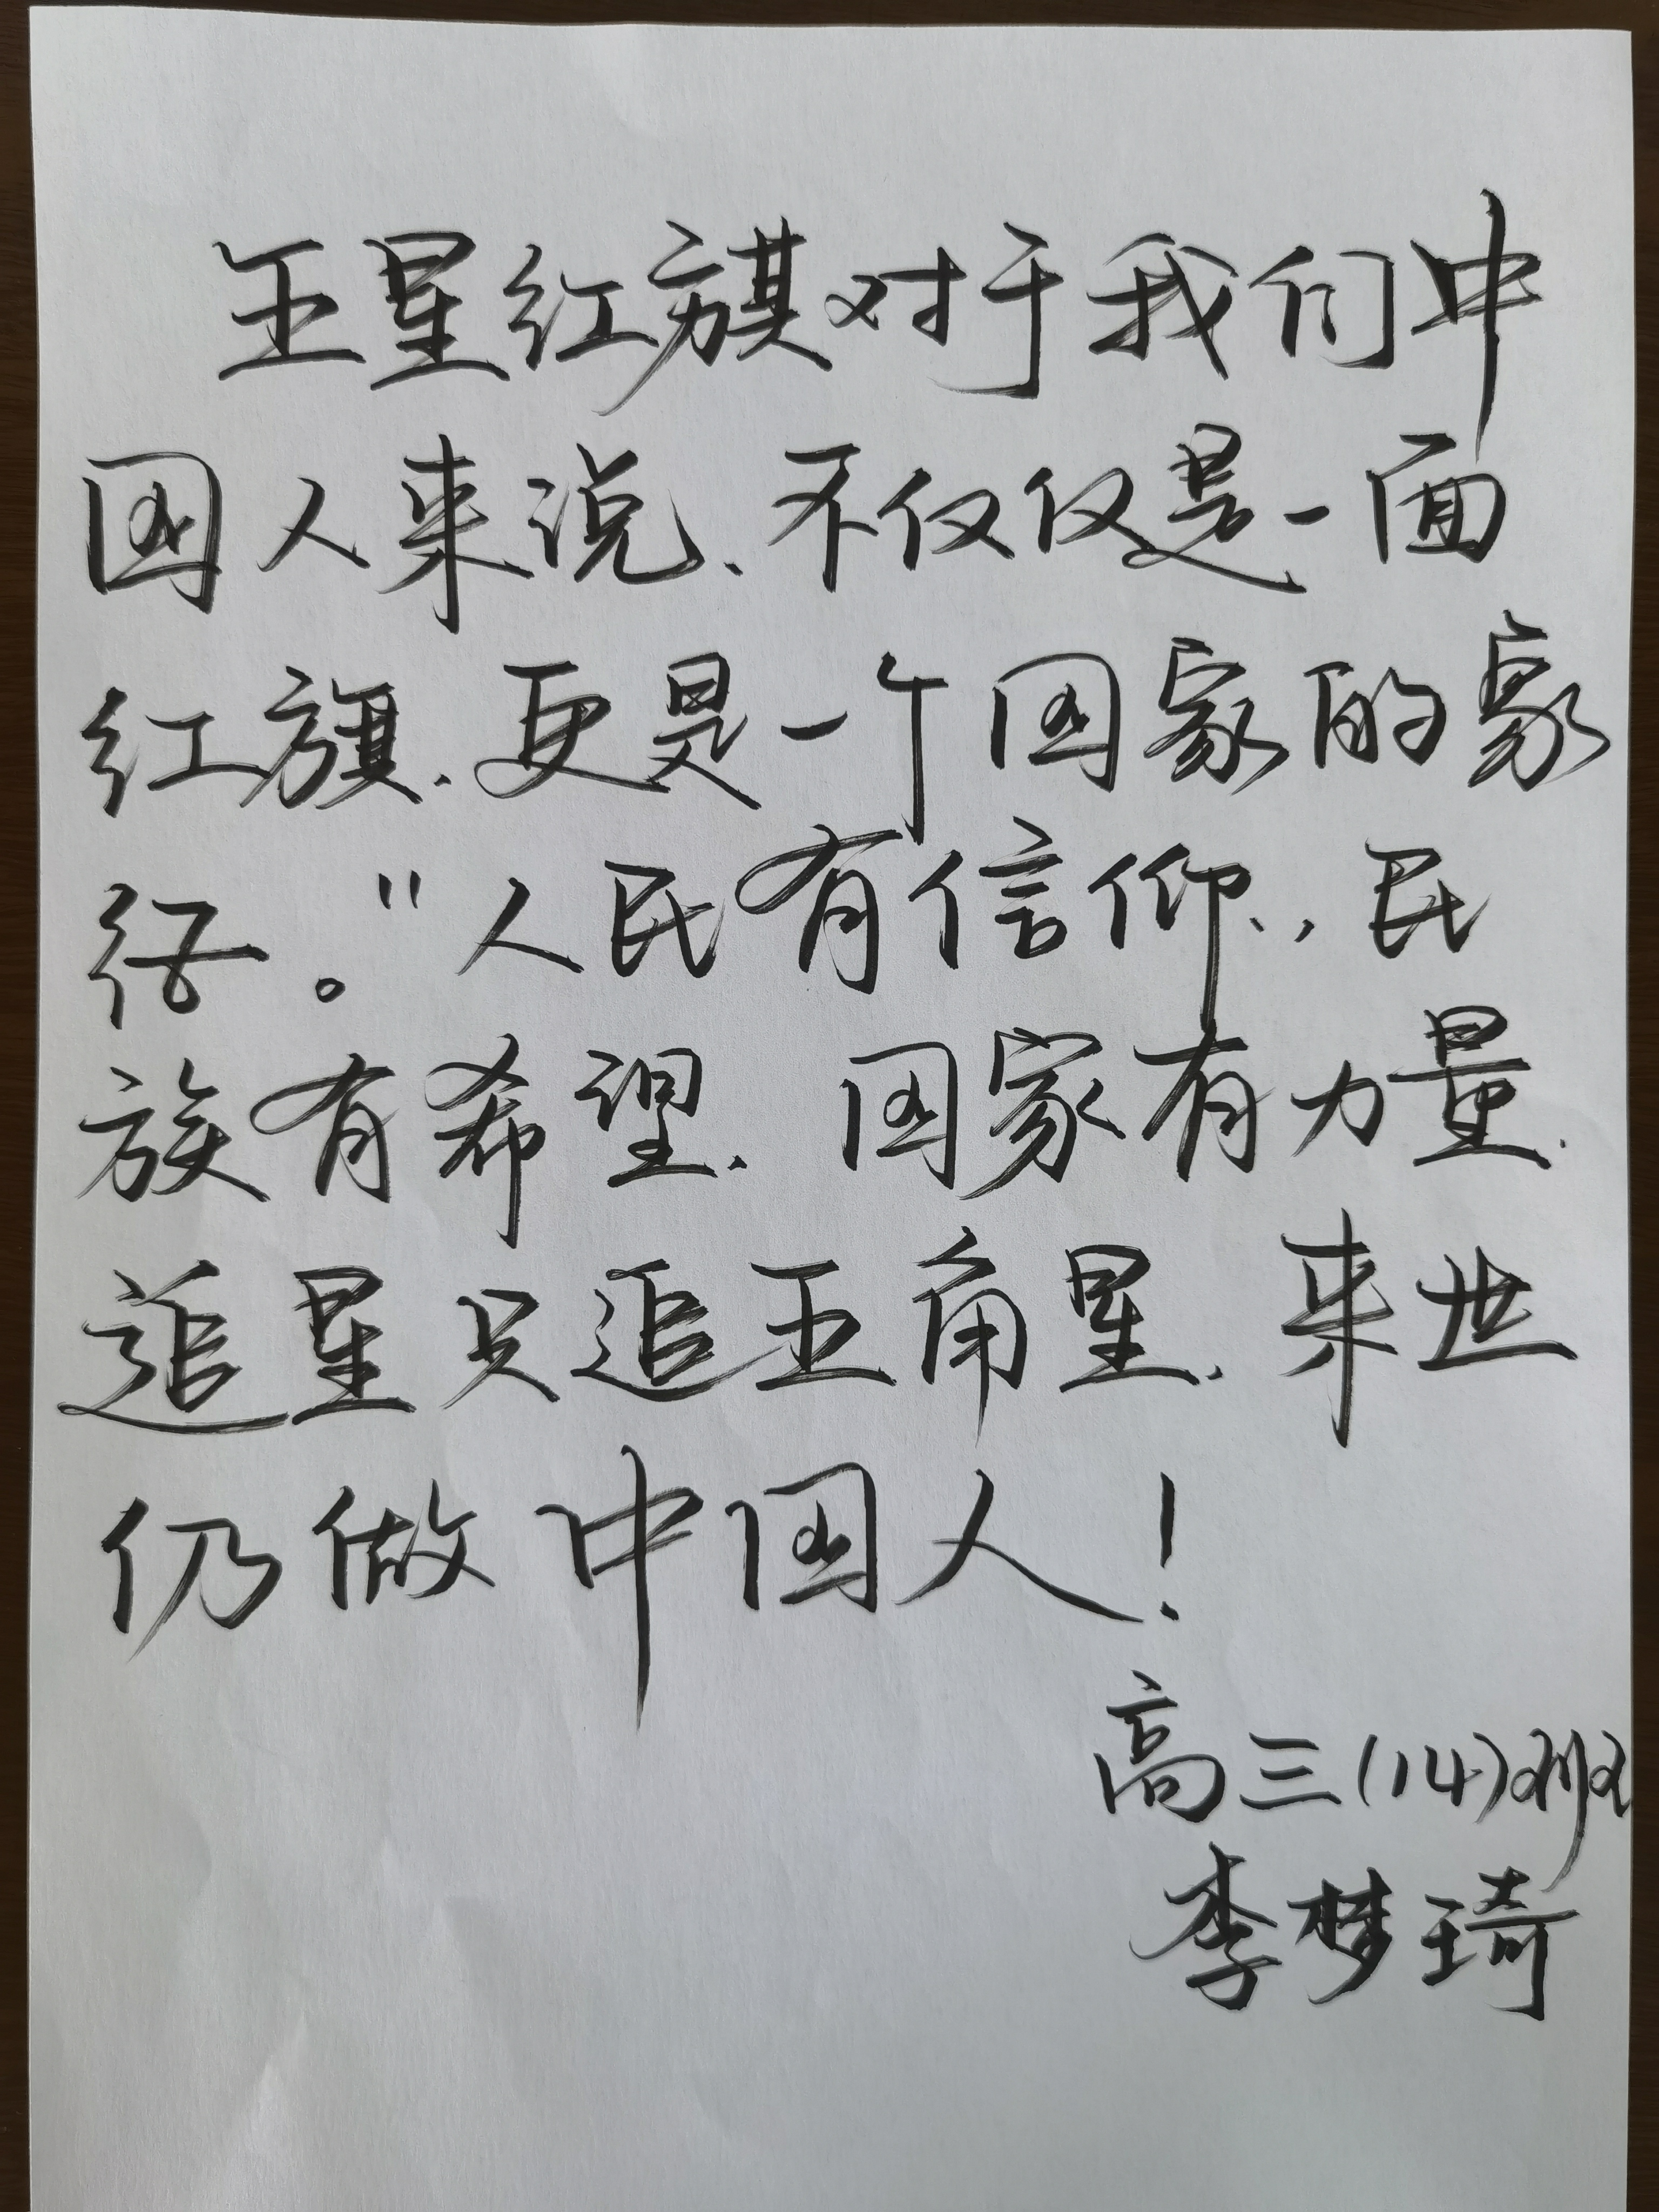 五星红旗对于我们中
国人来说、不仅仅是一面
红旗、更是一个国家的象
征。"人民有信仰，民
族有希望、国家有力量、
追星只追五角星、来世
仍做中国人！
高三(14)班
李梦琦